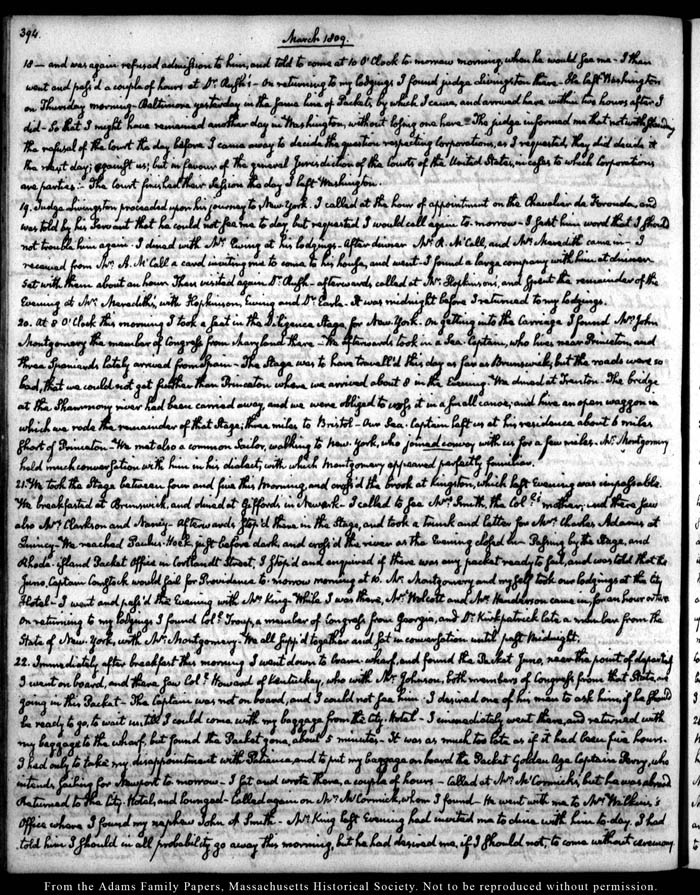 394.
March 1809.
18 — and was again refused admission to him, and told to come at 10 O'Clock to morrow morning, when he would see me - I then
went and pass'd a couple of hours at Dr. Rush's - On returning to my lodgings I found judge Livingston there - He left Washington
on Thursday morning - Baltimore yesterday in the same line of Packets, by which I came, and arrived here within two hours after I
did - So that I might have remained another day in Washington, without losing one here - The judge informed me that notwithstanding
the refusal of the Court the day before I came away to decide the question respecting corporations, as I requested, they did decide it
the next day; against us; but in favour of the general Jurisdiction of the Courts of the United States, in cases to which Corporations
are parties - The Court finished their session the day I left Washington.
19. Judge Livingston proceeded upon his journey to New York. I called at the hour of appointment on the Chevalier de Foronda, and
was told by his Servant that he could not see me to day, but requested I would call again to-morrow - I sent him word that I should
not trouble him again - I dined with Mr. Ewing at his lodgings - After dinner Mr. R. McCall, and Mr. Meredith came in - I
received from Mr. A. McCall a card inviting me to come to his house, and went - I found a large company with him at dinner
Sat with them about an hour Then visited again Dr. Rush - afterwards called at Mr. Hopkinson's, and spent the remainder of the
Evening at Mr. Meredith's, with Hopkinson, Ewing and Dr. Earle. It was midnight before I returned to my lodgings.
20. At 8 O'Clock this morning I took a seat in the Diligence Stage, for New York. On getting into the Carriage I found Mr. John
Montgomery the member of Congress from Maryland there - We afterwards took in a Sea-Captain, who lives near Princeton, and
three Spaniards lately arrived from Spain - The Stage was to have travell'd this day as far as Brunswick, but the roads were so
bad, that we could not get further than Princeton where we arrived about 8 in the Evening. We dined at Trenton. The bridge
at the Shammony river had been carried away, and we were obliged to cross it in a small canoe; and hire an open waggon in
which we rode the remainder of that Stage; three miles to Bristol - Our Sea-Captain left us at his residence about 6 miles
short of Princeton - We met also a common Sailor, walking to New York, who joined convoy with us for a few miles. Mr. Montgomery
held much conversation with him in his dialect, with which Montgomery appeared perfectly familiar.
21. We took the Stage between four and five this Morning, and cross'd the brook at Kingston, which last Evening was impassable.
We breakfasted at Brunswick, and dined at Giffords in Newark - I called to see Mrs. Smith, the Col's. mother; and there saw
also Mrs. Clarkson and Nancy - Afterwards stop'd there in the Stage, and took a trunk and letter for Mrs. Charles Adams at
Quincy - We reached Paulus-Hook just before dark, and cross'd the river as the Evening closed in - Passing by the Stage, and
Rhode-Island Packet Office in Cortlandt Street, I stop'd and enquired if there was any packet ready to sail, and was told that the
Juno, Captain Comstock would sail for Providence to-morrow morning at 10. Mr. Montgomery and myself took our lodgings at the City
Hotel - I went and pass'd the Evening with Mr. King - While I was there, Mr. Wolcott and Mr. Henderson came in, for an hour or two
On returning to my lodgings I found Col. Troup, a member of Congress from Georgia, and Dr. Kirkpatrick late a member from the
State of New York, with Mr. Montgomery. We all supp'd together and sat in conversation until past Midnight.
22. Immediately after breakfast this morning I went down to Crane-wharf, and found the Packet Juno, near the point of departing
I went on board, and there saw Col. Howard of Kentuckey, who with Mr. Johnson, both members of Congress from that State, are
going in this Packet - The Captain was not on board, and I could not see him - I desired one of his men to ask him, if he should
be ready to go, to wait until I could come with my baggage from the City-Hotel - I immediately went there, and returned with
my baggage to the wharf, but found the Packet gone, about 5 minutes - It was as much too late as if it had been five hours.
I had only to take my disappointment with Patience, and to put my baggage on board the Packet Golden Age Captain Perry, who
intends sailing for Newport to-morrow - I sat and wrote there, a couple of hours - Called at Mr. McCormick's, but he was abroad
Returned to the City-Hotel, and lounged - Called again on Mr. McCormick, whom I found - He went with me to Mr. Wilkins's
Office where I found my nephew John A Smith - Mr. King last Evening had invited me to dine with him to-day. I had
told him I should in all probability go away this morning, but he had desired me, if I should not, to come without ceremony
From the Adams Family Papers, Massachusetts Historical Society. Not to be reproduced without permission.